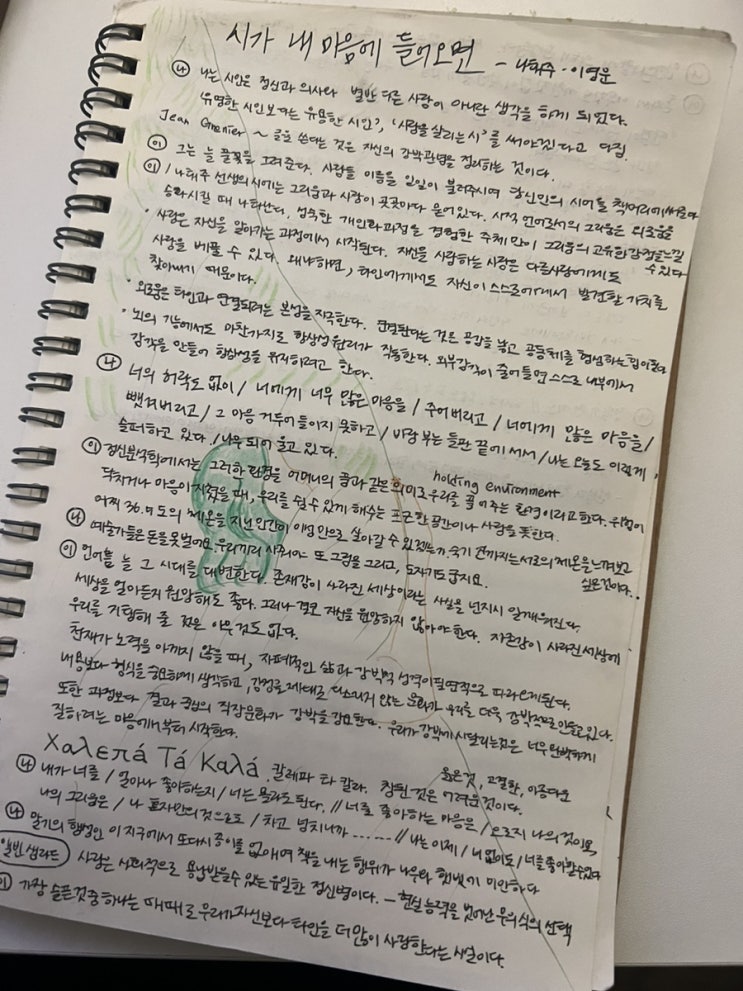 시가 내 마음에 들어오면 - 나태주·이영문
㉯ 나는 시인은 정신과 의사와 별반 다른 사람이 아니란 생각을 하게 되었다.
유명한 시인보다는 유용한 시인', '사람을 살리는 시'를 써야겠다고 다짐.
Jean Grenier ~ 글을 쓴다는 것은 자신의 강박관념을 정리하는 것이다.
㉧ 그는 늘 풀꽃을 그려준다. 사람들 이름을 일일이 불러주시며 당신만의 시어를 책머리에
㉧ / 나태주 선생의 시에는 그리움과 사랑이 곳곳마다 묻어있다. 시적 언어로서의 그리움은 외로움을
승화시킬 때 나타난다. 성숙한 개인화과정을 경험한 주체만이 그리움의 고유한 감정을 느낄
수 있다
· 사랑은 자신을 알아가는 과정에서 시작된다. 자신을 사랑하는 사람은 다른사람에게도
사랑을 베풀 수 있다. 왜냐하면, 타인에게도 자신이 스스로에게서 발견할 가치를
찾아내기 때문이다.
· 외로움은 타인과 연결되려는 본성을 자극한다. 연결된다는 것은 공감을 낳고 공동체를 형성하는 힘이된다
· 뇌의 기능에서도 마찬가지로 항상성 원리가 작동한다. 외부감각이 줄어들면 스스로 내부에서
감각을 만들어 항상성을 유지하려고 한다.
㉯ 너의 허락도 없이 / 너에게 너무 많은 마음을 / 주어버리고 / 너에게 많은 마음을 /
뺏겨버리고 / 그 마음 거두어 들이지 못하고 / 바람 부는 들판 끝에 서서 / 나는 오늘도 이렇게,
슬퍼하고 있다 / 나무 되어 울고 있다.
holding environment
㉧ 정신분석학에서는 그러한 안정을 어머니의 품과 같은 의미로 우리를 품어주는 환경이라고 한다. 위험이
닥치거나 마음이 지쳤을 때, 우리를 쉴 수 있게 해주는 포근한 공간이나 사람을 뜻한다.
㉯ 어찌 36.5도의 체온을 지닌 인간이 이성만으로 살아갈 수 있겠는가. 죽기 전까지는 서로의 체온을 느껴보고
싶은것이다..
㉯ 예술가들은 돈을 못벌어요. 우리끼리 사줘야 또 그림을 그리고, 도자기도 굽지요.
㉧ 언어를 늘 그 시대를 대변한다. 존재감이 사라진 세상이라는 사실을 넌지시 일깨워진다.
세상을 얼마든지 원망해도 좋다. 그러나 결코 자신을 원망하지 않아야 한다. 자존감이 사라진 세상에
우리를 지탱해 줄 것은 아무 것도 없다.
천재가 노력을 아끼지 않을 때, 자폐적인 삶과 강박적 성격이 필연적으로 따라오게된다.
내용보다 형식을 중요하게 생각하고, 감정을 제대로 다스리지 않는 문화가 우리를 더욱 강박적으로 만들고 있다.
또한 과정보다 결과 중심의 직장문화가 강박을 강요한다. 우리가 강박에 시달리는것은 너무 완벽하게
잘하려는 마음에서부터 시작한다.
옳은것, 고결한, 아름다운
Χαλεπά Τά Καλά. 칼레파 타 칼라. 참된 것은 어려운것이다.
㉯ 내가 너를 / 얼마나 좋아하는지 / 너는 몰라도 된다. // 너를 좋아하는 마음은 / 오로지 나의 것이요,
나의 그리움은 / 나 혼자만의 것으로도 / 차고 넘치니까 ...... // 나는 이제 / 너 없이도 / 너를 좋아할수있다
㉯ 말기의 행성인 이 지구에서 또다시 종이를 없애며 책을 내는 행위가 나무와 햇빛께 미안하다
사랑은 사회적으로 용납받을수 있는 유일한 정신병이다. - 현실능력을 벗어난 무의식의 선택
㉧ 가장 슬픈것중 하나는 때때로 우리가 자신보다 타인을 더 많이 사랑한다는 사실이다.